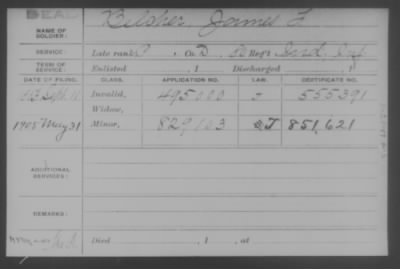 DEAD
NAME OF SOLDIER: Belsher, James L
SERVICE: Late rank P, Co. D, 50 Reg't Ind. Inf
TERM OF SERVICE: Enlisted , 1 Discharged , 1
DATE OF FILING. CLASS. APPLICATION NO. LAW. CERTIFICATE NO.
Sept. Invalid, 495000 555391
Widow,
1905 May 31 Minor, 829,103 J 851,621
ADDITIONAL SERVICES:
REMARKS:
Died , 1 , at